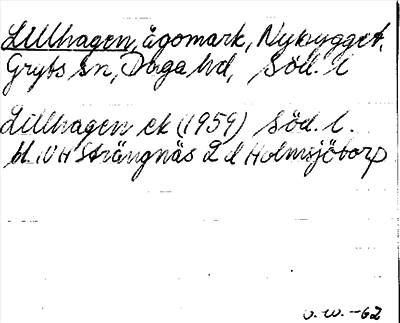 Lillhagen, ägomark, Nybygget,
Gryts sn, Daga hd, Söd. l
Lillhagen ek (1959) Söd. l.
bl. 10H Strängnäs 2 d Holmsjötorp